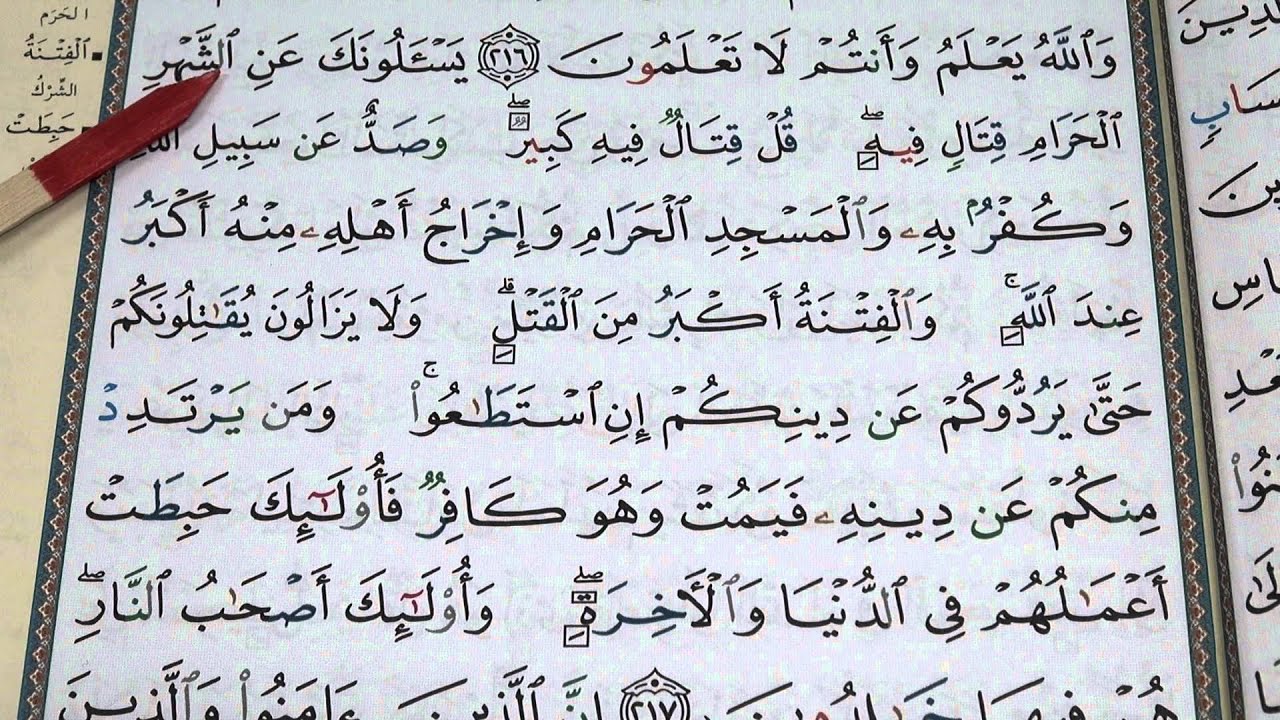 وَٱللَّهُ يَعۡلَمُ وَأَنتُمۡ لَا تَعۡلَمُونَ ٢١٦ يَسۡـَٔلُونَكَ عَنِ ٱلشَّهۡرِ
ٱلۡحَرَامِ قِتَالٖ فِيهِۖ قُلۡ قِتَالٞ فِيهِ كَبِيرٞۖ وَصَدٌّ عَن سَبِيلِ ٱللَّهِ
وَكُفۡرُۢ بِهِۦ وَٱلۡمَسۡجِدِ ٱلۡحَرَامِ وَإِخۡرَاجُ أَهۡلِهِۦ مِنۡهُ أَكۡبَرُ
عِندَ ٱللَّهِۚ وَٱلۡفِتۡنَةُ أَكۡبَرُ مِنَ ٱلۡقَتۡلِۗ وَلَا يَزَالُونَ يُقَٰتِلُونَكُمۡ
حَتَّىٰ يَرُدُّوكُمۡ عَن دِينِكُمۡ إِنِ ٱسۡتَطَٰعُواْۚ وَمَن يَرۡتَدِدۡ
مِنكُمۡ عَن دِينِهِۦ فَيَمُتۡ وَهُوَ كَافِرٞ فَأُوْلَٰٓئِكَ حَبِطَتۡ
أَعۡمَٰلُهُمۡ فِي ٱلدُّنۡيَا وَٱلۡأٓخِرَةِۖ وَأُوْلَٰٓئِكَ أَصۡحَٰبُ ٱلنَّارِۖ
هُمۡ فِيهَا ٢١٧ إِنَّ ٱلَّذِينَ ءَامَنُواْ وَٱلَّذِينَ
الحَرَم
ٱلۡفِتۡنَةُ
الشِّرْكُ
حَبِطَتۡ